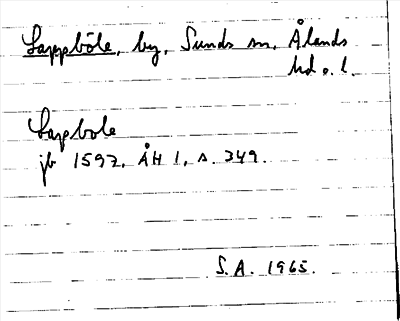 Lappböle, by, Sunds sn, Ålands
hd o. l.
Lapbole
jb 1592, ÅH 1, s. 349.
S.A. 1965.